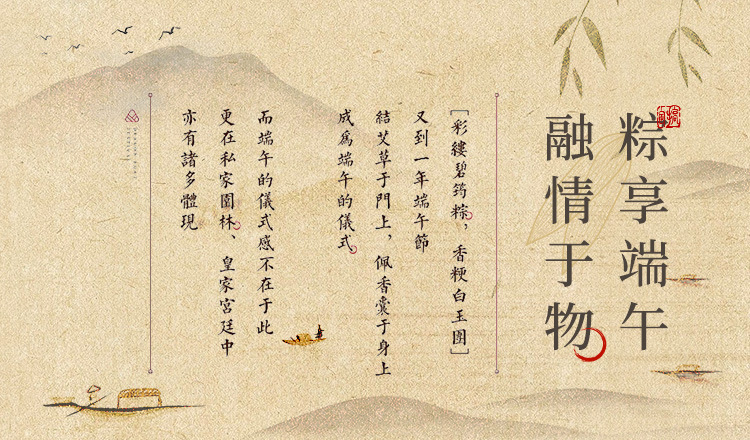 粽享端午
融情于物
[彩縷碧筠粽，香粳白玉團]
又到一年端午節
結艾草于門上，佩香囊于身上
成爲端午的儀式
而端午的儀式感不在于此
更在私家園林、皇家宮廷中
亦有諸多體現